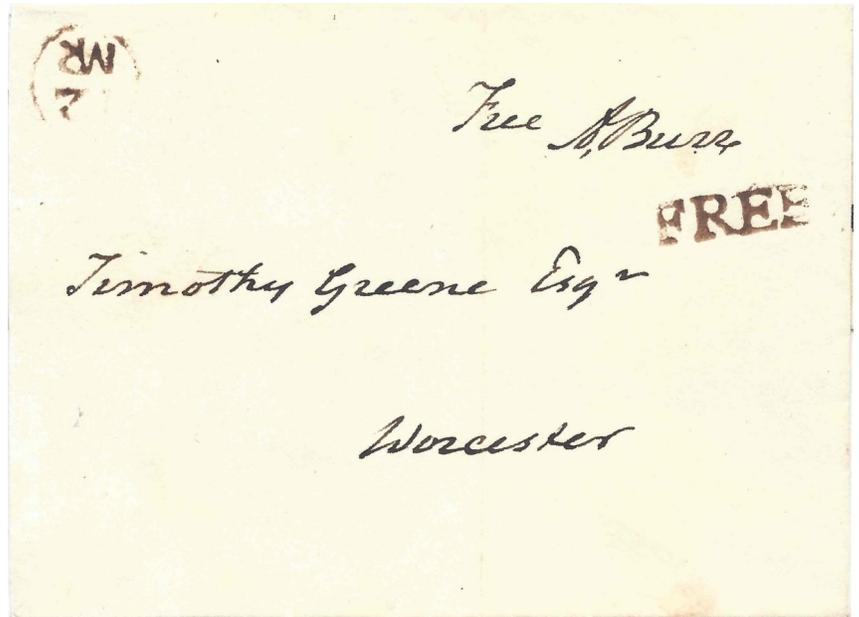 MR
2
Free A, Burr
FREE
Timothy Greene Esqr
Worcester